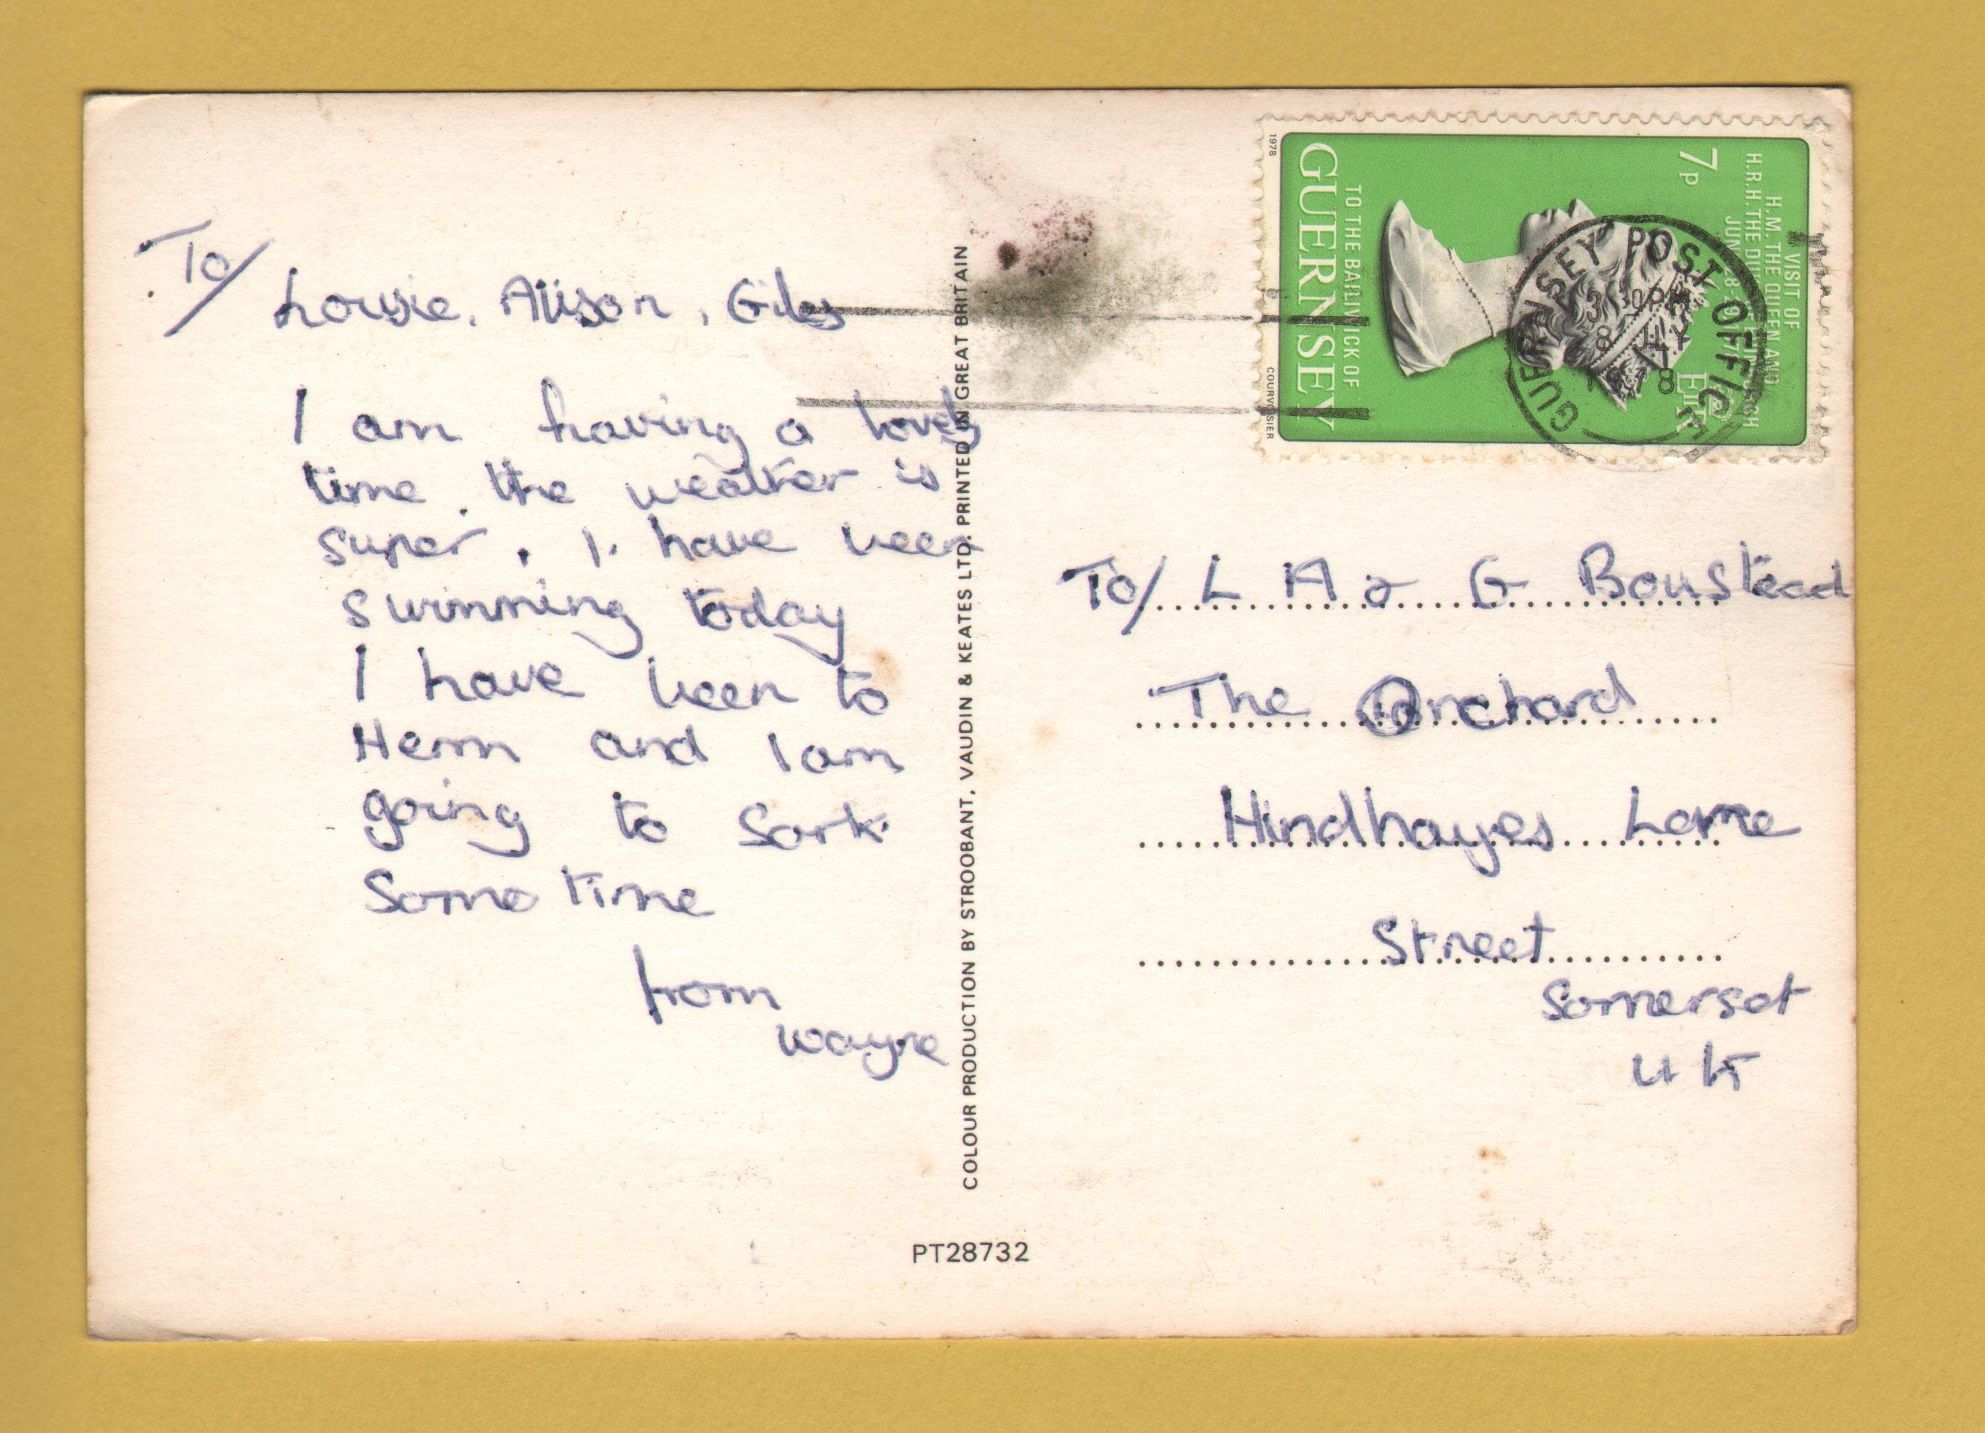 To/
Lousie, Alison, Giles
I am having a lovely
time. the weather is
super. I have been
swimming today
I have been to
Herm and I am
going to Sark
Some time
from
wayne
COLOUR PRODUCTION BY STROOBANT, VAUDIN & KEATES LTD. PRINTED IN GREAT BRITAIN
PT28732
7p
A VISIT OF
H.M. THE QUEEN AND
H.R.H. THE DUKE OF EDINBURGH
JUNE 28-29 1978
TO THE BAILIWICK OF
GUERNSEY
1978
COURVOISIER
EIIR
GUERNSEY POST OFFICE
3 30PM
8 JLY
1978
To/ L A & G Boustead
The Orchard
Hindhayes Lane
Street
Somerset
UK